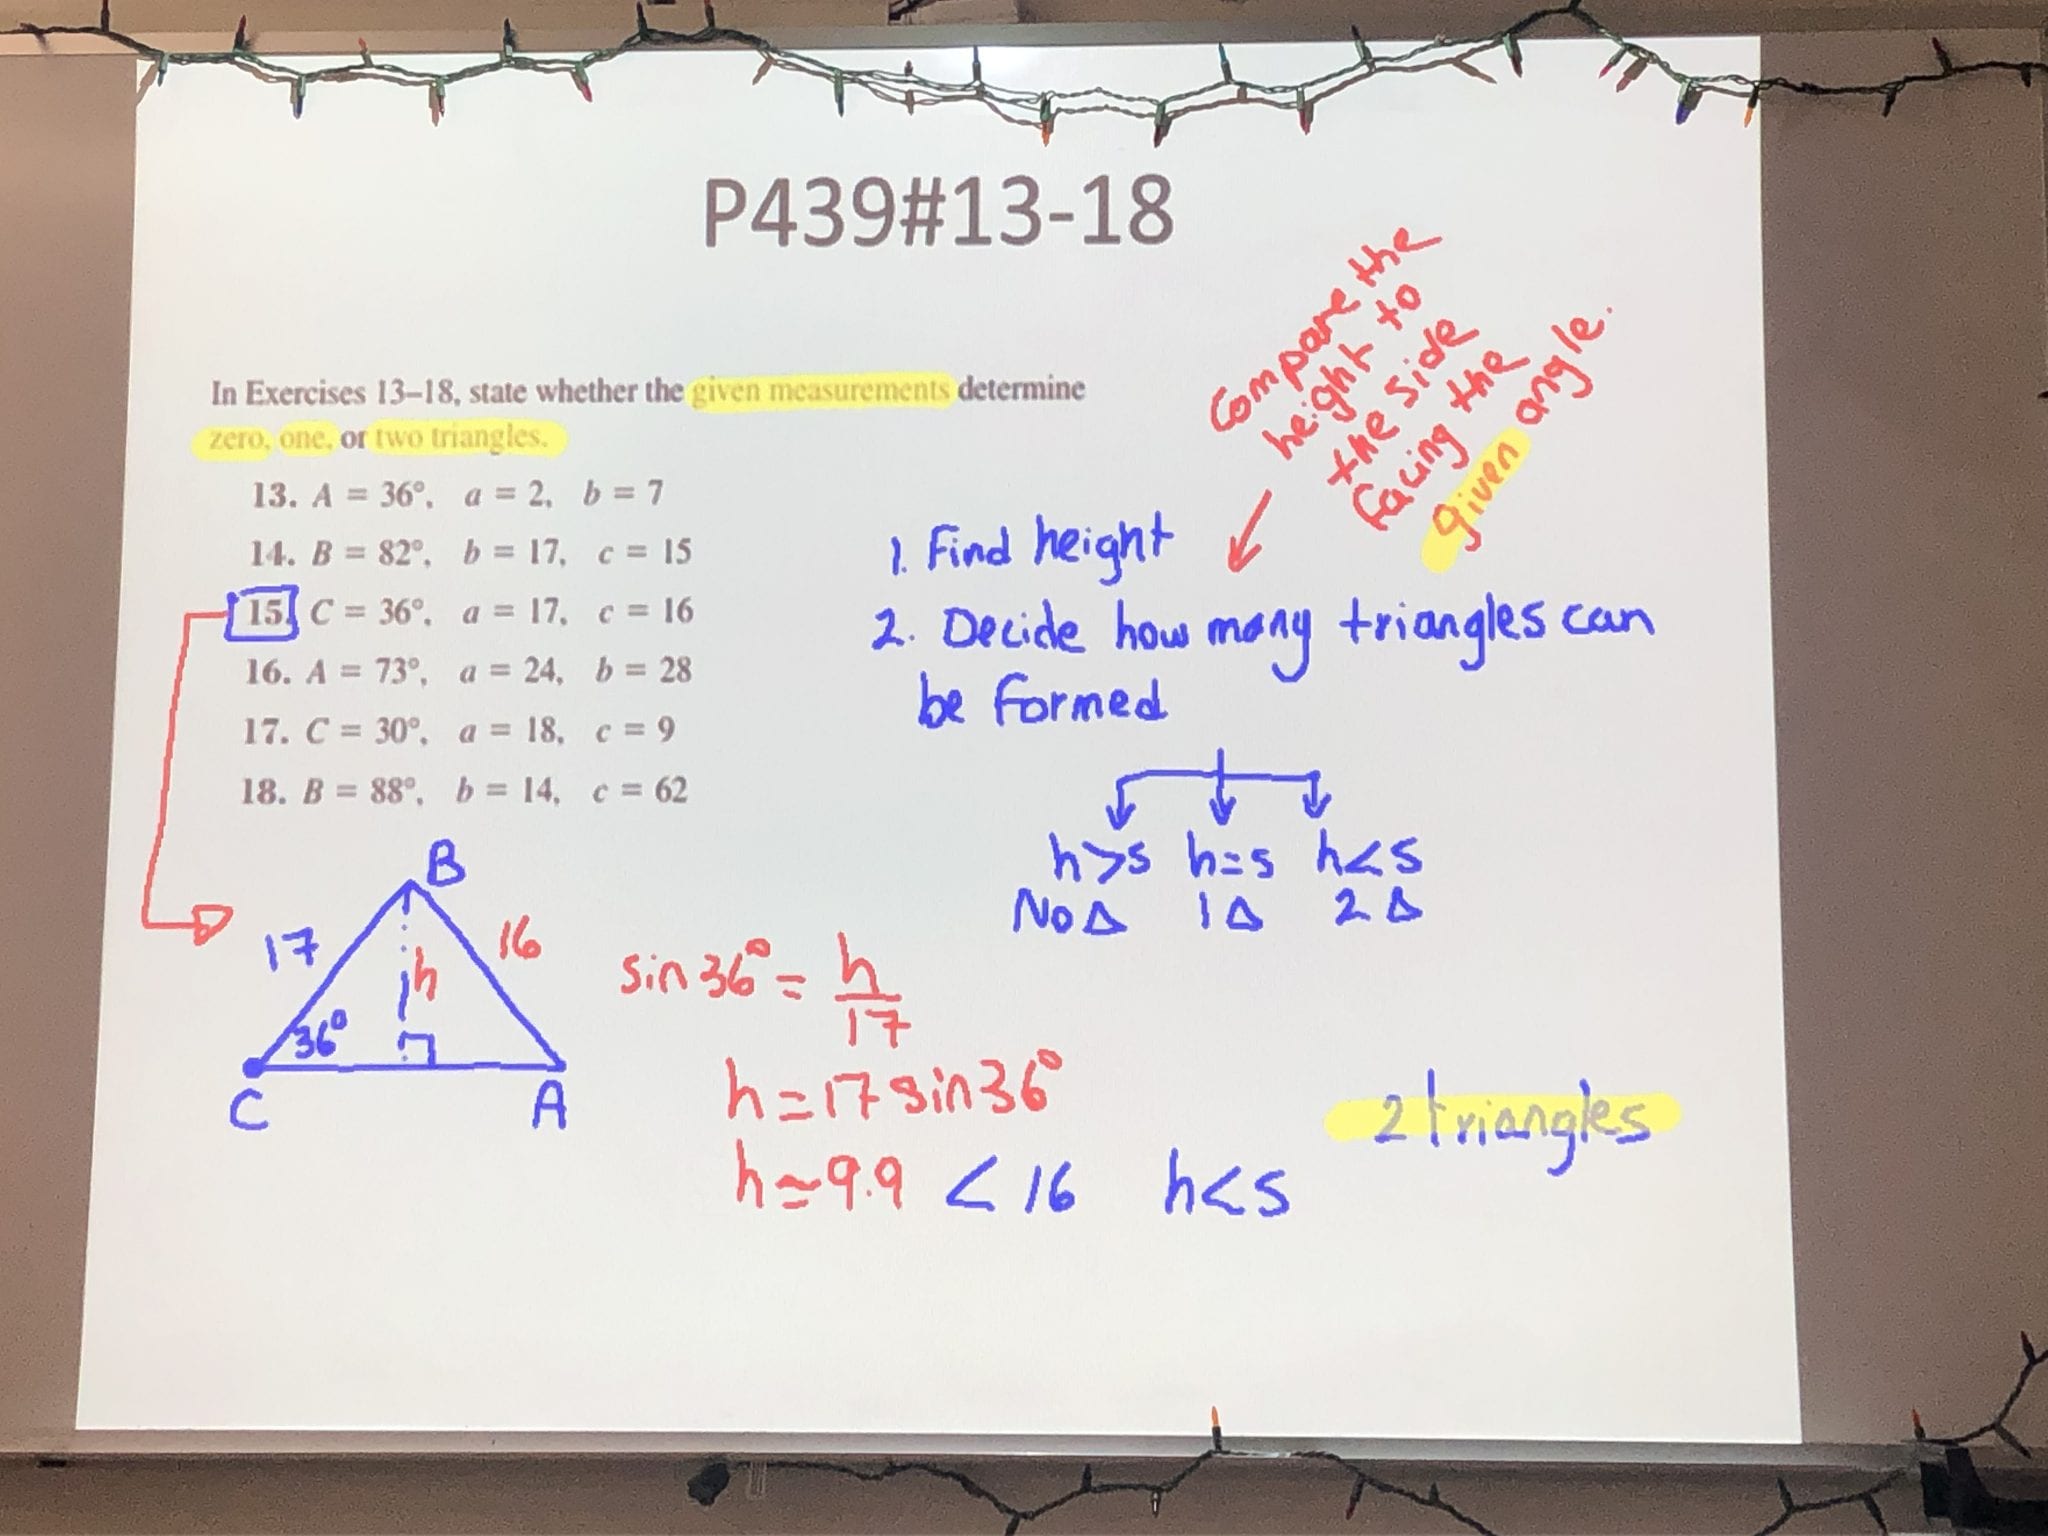 P439#13-18
In Exercises 13–18, state whether the given measurements determine
zero, one, or two triangles.
13. A = 36°, a = 2, b = 7
14. B = 82°, b = 17, c = 15
15. C = 36°, a = 17, c = 16
16. A = 73°, a = 24, b = 28
17. C = 30°, a = 18, c = 9
18. B = 88°, b = 14, c = 62
Compare the
height to
the side
facing the
given angle.
1. Find height
2. Decide how many triangles can
be formed
h>s h=s h<s
No Δ 1 Δ 2 Δ
B
17 16
h
36°
C A
sin 36° = h/17
h = 17 sin 36°
h ≃ 9.9 < 16 h<s
2 triangles